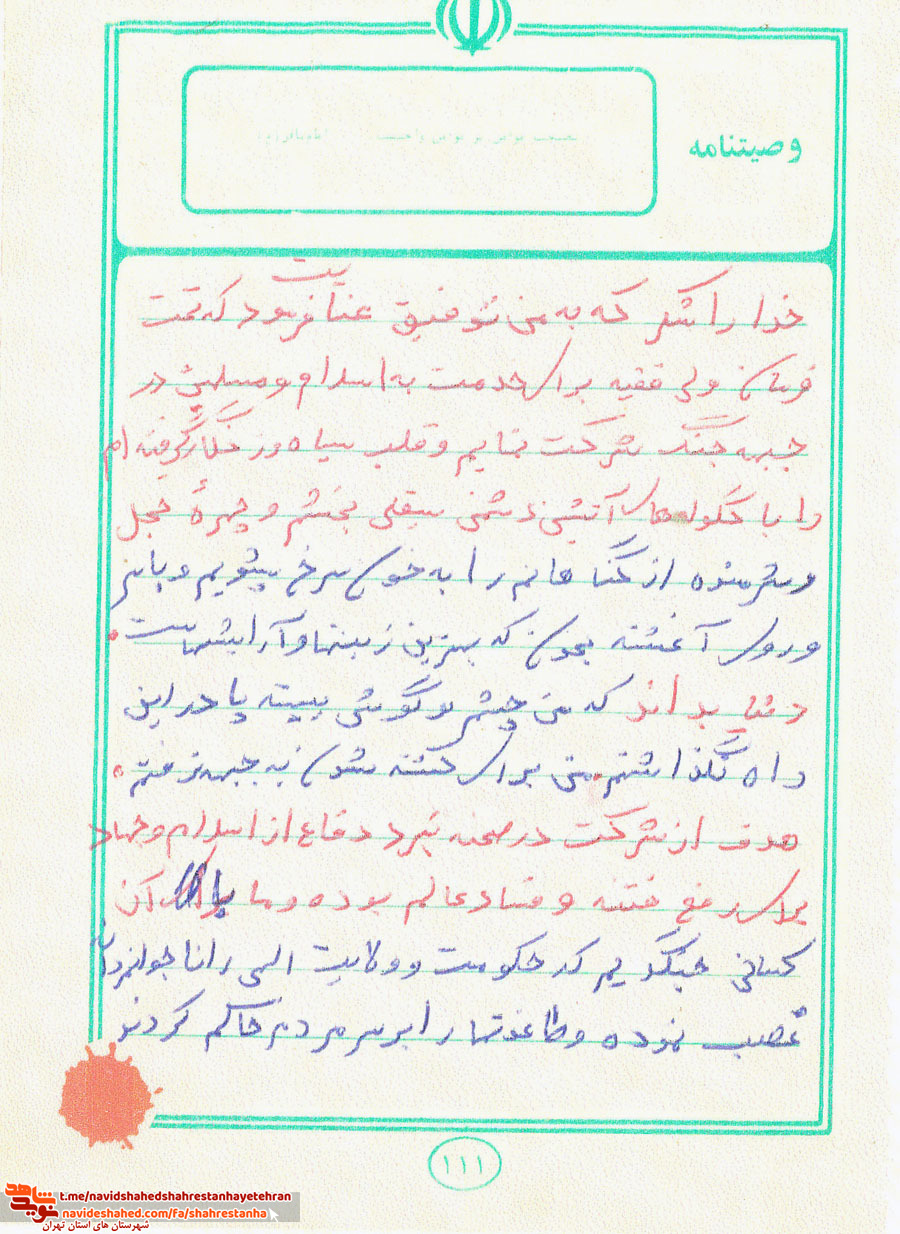 وصیتنامه
خدا را شکر که به من توفیق عنایت فرمود که تحت
فرمان ولی فقیه برای خدمت به اسلام و مسلمین در
جبهه جنگ شرکت نمایم و قلب سیاه و زنگار گرفته ام
را با گلوله های آتشین دشمن صیقلی بخشم و چهرهٔ خجل
و شرمنده از گناهانم را به خون سرخ بشویم و با سر
و روی آغشته بخون که بهترین زینتها و آرایشهاست.
دشمن بداند که من چشم و گوش بسته پا در این
راه نگذاشتم. من برای کشته شدن به جبهه نرفتم.
هدف از شرکت در صحنه نبرد دفاع از اسلام و جهاد
برای رفع فتنه و فساد عالم بوده و ما با آن
کسانی میجنگیم که حکومت و ولایت الهی را ناجوانمردانه
غصب نموده و طاغوتها را بر سر مردم حاکم کردند
۱۱۱
شاهد
نوید
t.me/navidshahedshahrestanhayetehran
navideshahed.com/fa/shahrestanha
شهرستان های استان تهران